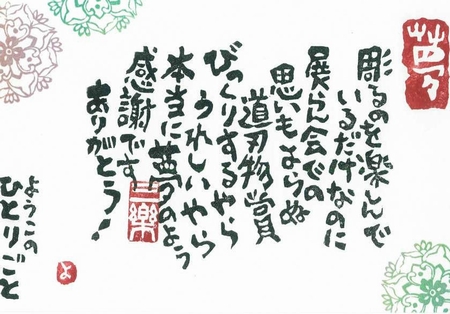 夢
彫るのを楽しんで
いるだけなのに
展らん会での
思いもよらぬ
道刃物賞
びっくりするやら
うれしいやら
本当に夢のよう
感謝です
ありがとう！
三樂
ようこの
ひとりごと
よ